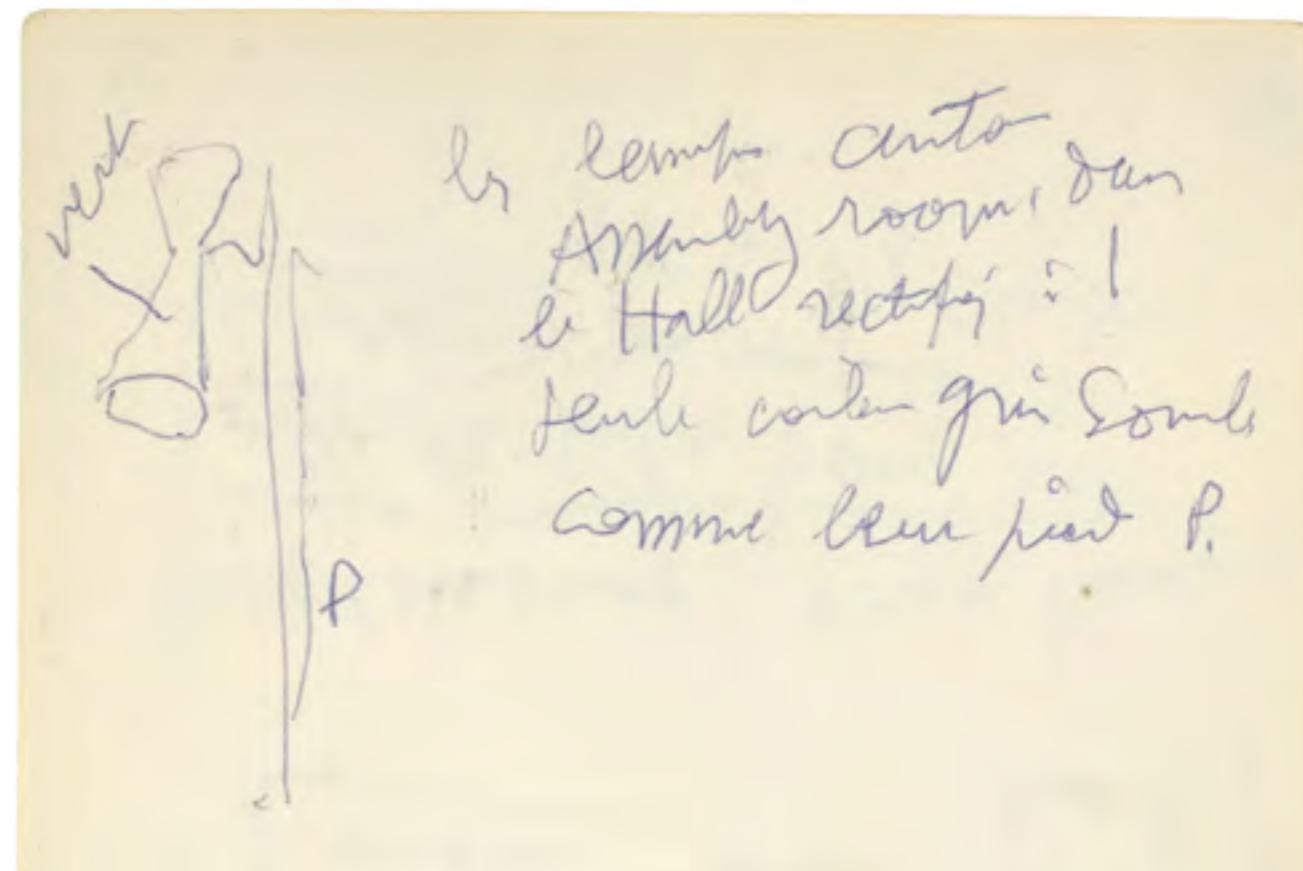 vert
les lampes auto
Assembly room, dans
le Hall rectifier : !
seule couleur gris sombre
comme leur pied P.
P